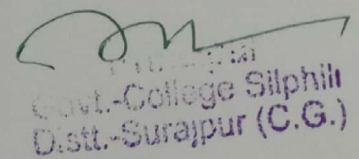 Govt.-College Silphili
Distt.-Surajpur (C.G.)